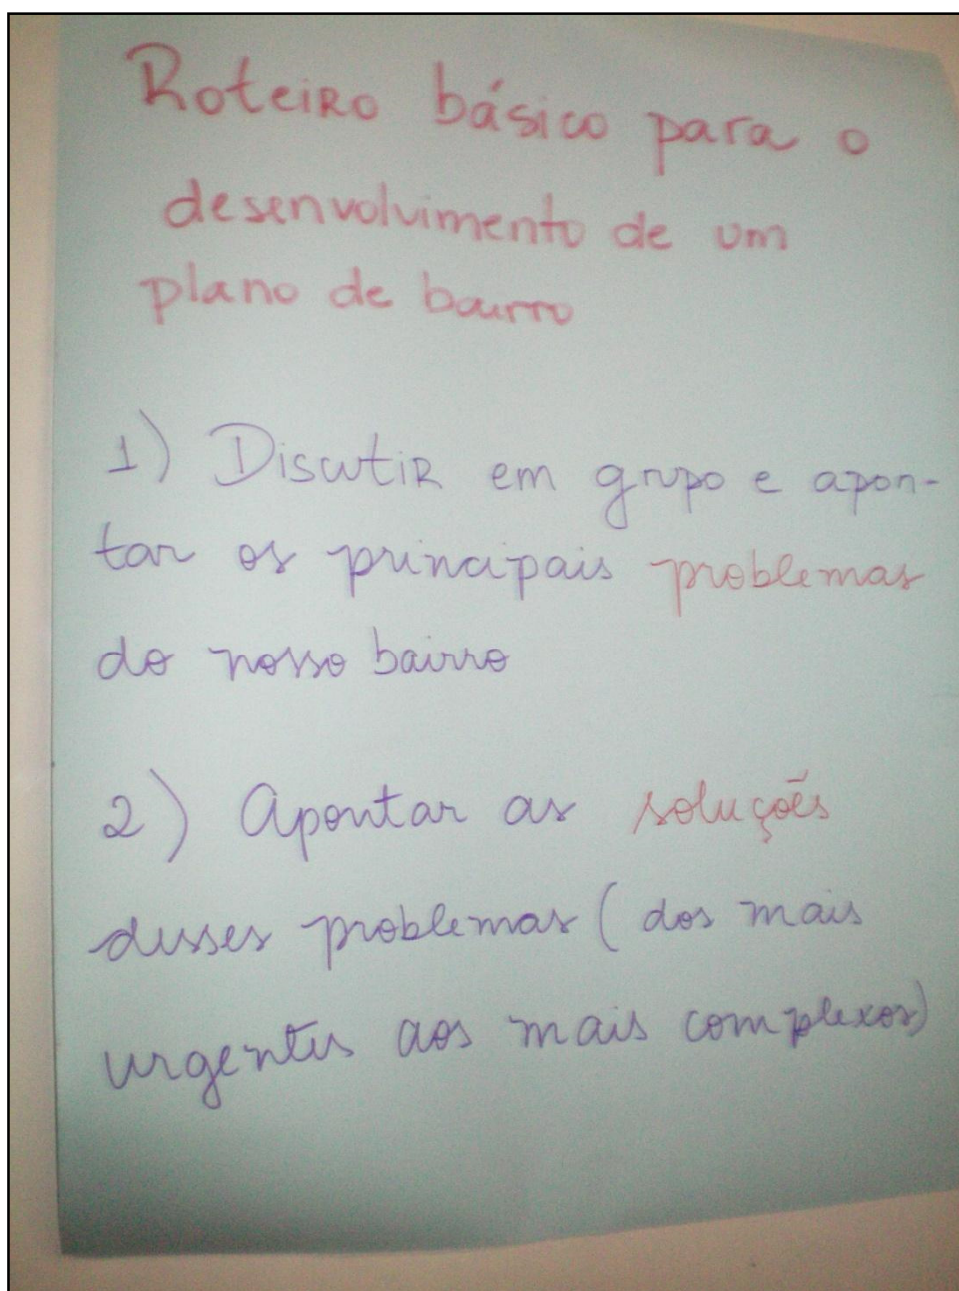 Roteiro básico para o
desenvolvimento de um
plano de bairro
1) Discutir em grupo e apon-
tar os principais problemas
do nosso bairro
2) Apontar as soluções
desses problemas (dos mais
urgentes aos mais complexos)